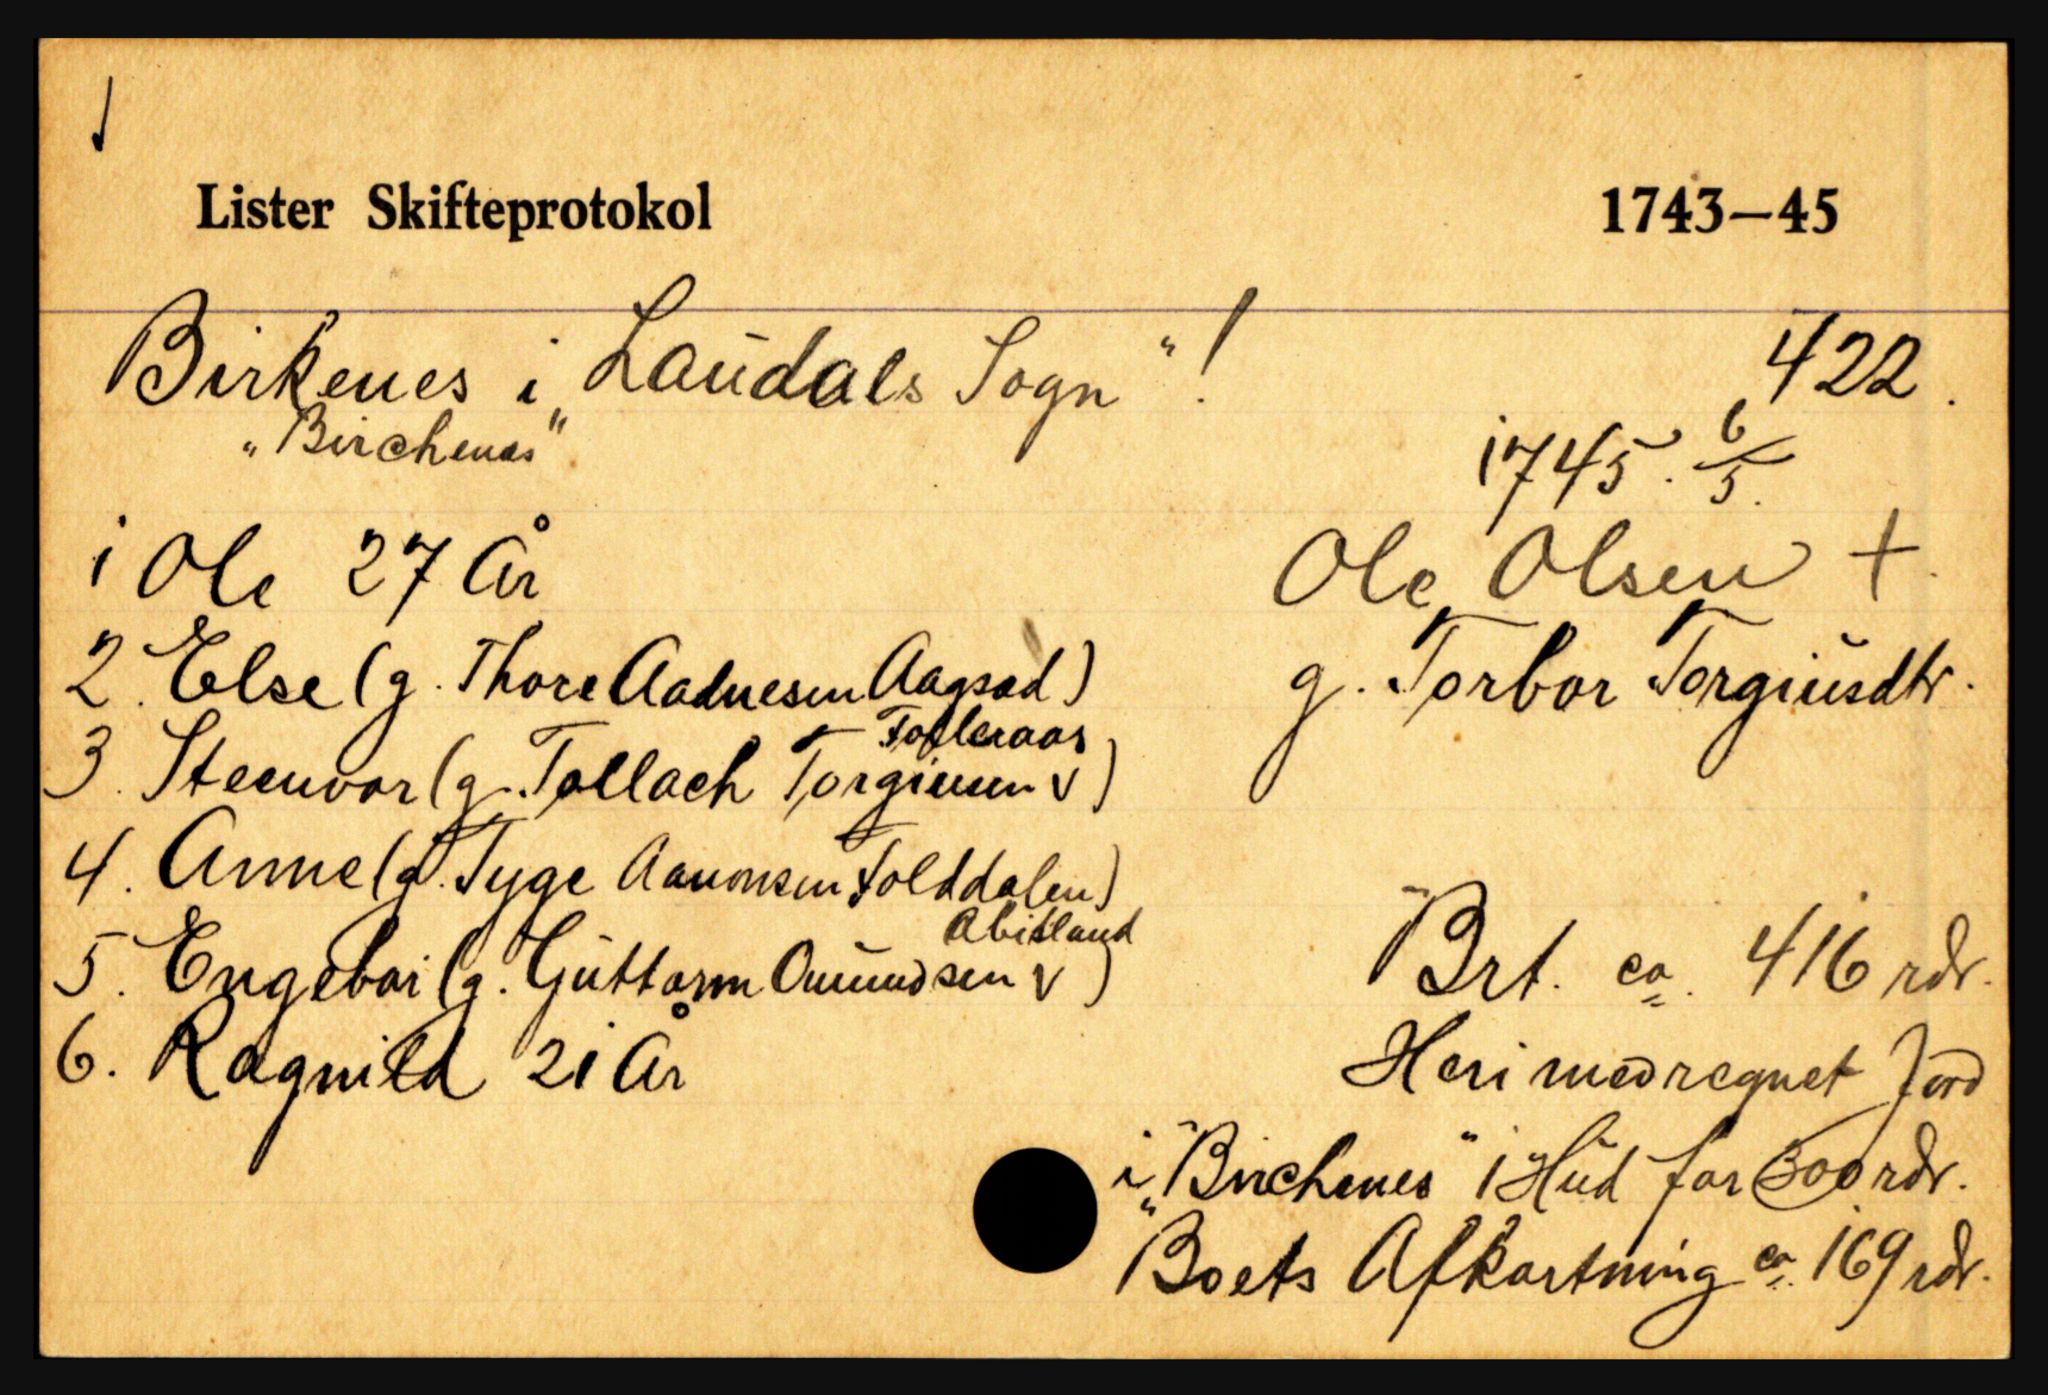 Lister Skifteprotokol 1743—45
Birkenes i „Laudals Sogn“! 422.
„Birchenes“
1745. 6/5.
1 Ole 27 År
Ole Olsen +.
2. Else (g. Thore Aadnesen Aagsad)
g. Torbor Torgiusdtr.
Folleraas
3. Steenvor (g. Tollach Torgiusen v)
4. Anne (g. Tyge Aanonsen Folddalen)
Abisland
5. Engebor (g. Guttorm Omundsen v)
Brt. ca. 416 rdr.
6. Ragnild 21 År
Heri medregnet Jord
i „Birchenes“ 1 Hud for 300 rdr.
Boets Afkortning ca. 169 rdr.